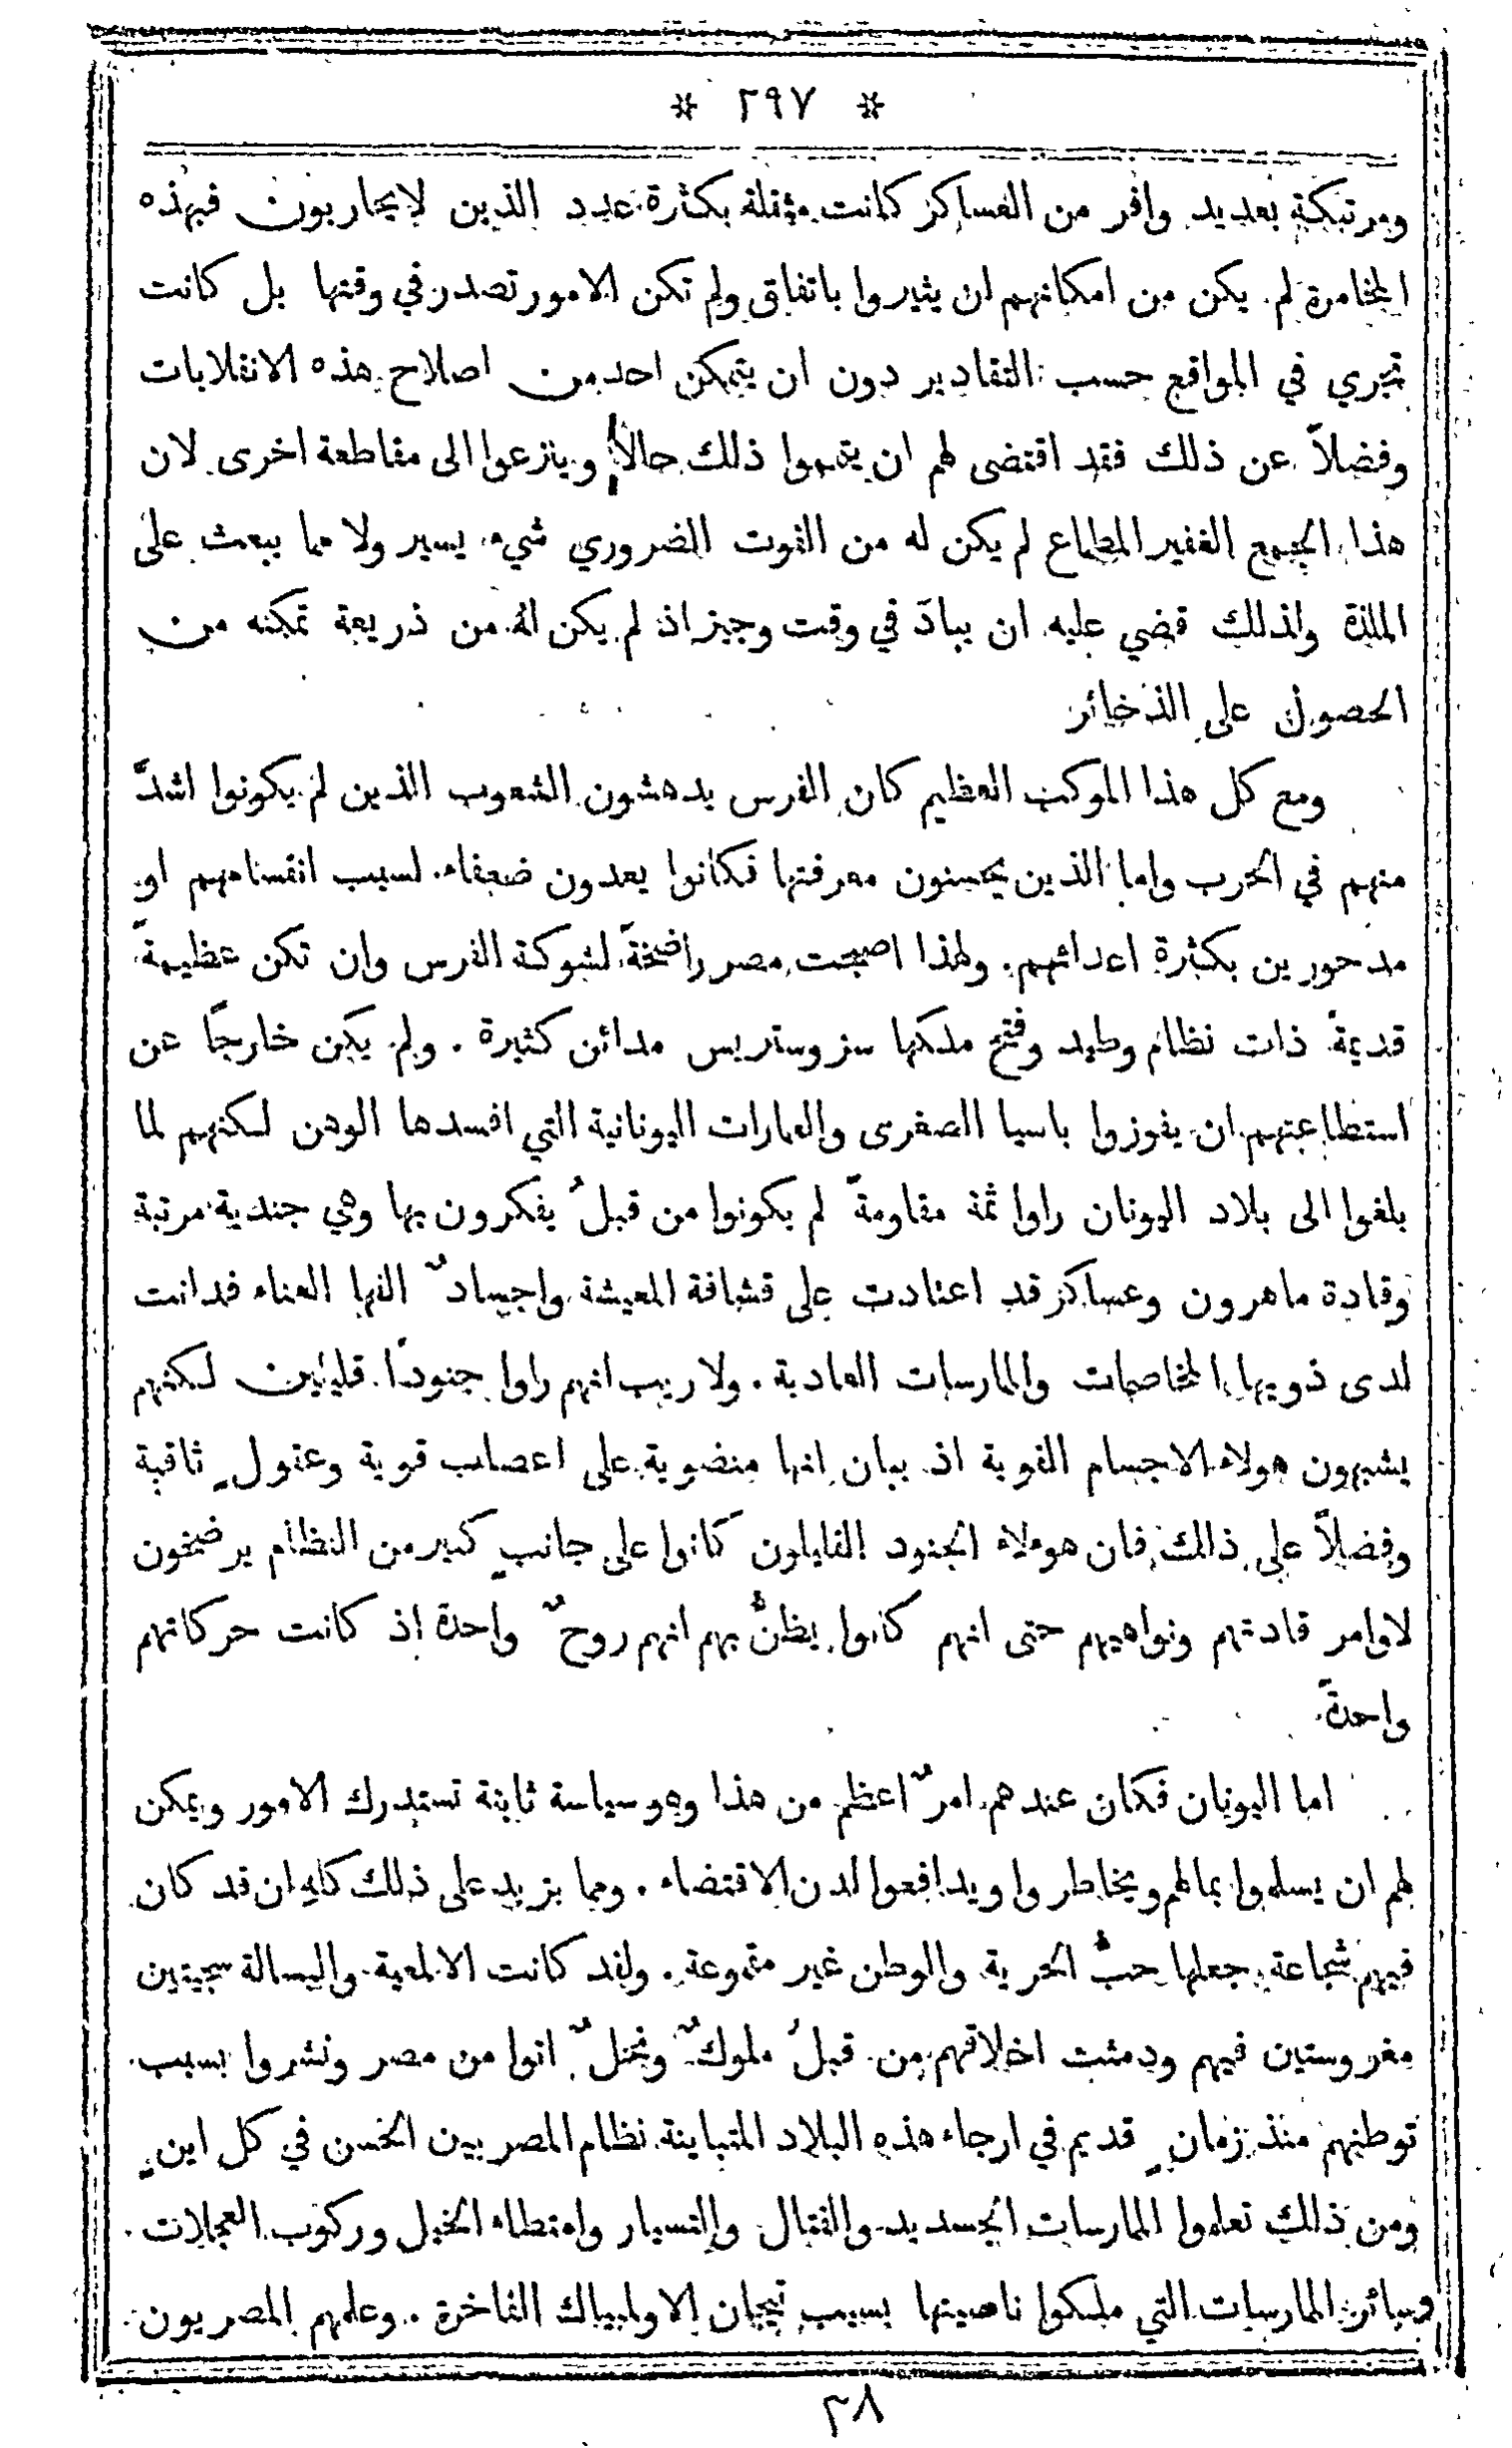 * ٢٩٧ *
ومرتبكة بعديد وافر من العساكر كانت مثقلة بكثرة عدد الذين لايحاربون فبهذه
المخامرة لم يكن من امكانهم ان يثيروا باتفاق ولم تكن الامور تصدر في وقتها بل كانت
تجري في المواقع حسب التقادير دون ان يتمكن احد من اصلاح هذه الانقلابات
وفضلاً عن ذلك فقد اقتضى لهم ان يتمموا ذلك حالاً وينزعوا الى مقاطعة اخرى لان
هذا الجمع الغفير المطماع لم يكن له من القوت الضروري شيء يسير ولا مما يبعث على
الملذة ولذلك قضي عليه ان يبادَ في وقت وجيز اذ لم يكن لهُ من ذريعة تمكنه من
الحصول على الذخائر
ومع كل هذا الموكب العظيم كان الفرس يدهشون الشعوب الذين لم يكونوا اشدَّ
منهم في الحرب واما الذين يحسنون معرفتها فكانوا يعدون ضعفاء لسبب انقسامهم او
مدحورين بكثرة اعدائهم. ولهذا اصبحت مصر راضخةً لشوكة الفرس وان تكن عظيمةً
قديمةً ذات نظام وطيد وفتح ملكها سزوستريس مدائن كثيرة . ولم يكن خارجًا عن
استطاعتهم ان يفوزوا باسيا الصغرى والعمارات اليونانية التي افسدها الوهن لكنهم لما
بلغوا الى بلاد اليونان راوا ثمة مقاومةً لم يكونوا من قبلُ يفكرون بها وهي جندية مرتبة
وقادة ماهرون وعساكر قد اعتادت على قشافة المعيشة واجسادٌ الفها العناء فدانت
لدى ذويها المخاصمات والممارسات العادية . ولا ريب انهم راوا جنودًا قليلين لكنهم
يشبهون هولاء الاجسام القوية اذ يبان انها منضوية على اعصاب قوية وعقولٍ ثاقبة
وفضلاً على ذلك فان هولاء الجنود القليلون كانوا على جانبٍ كبير من النظام يرضخون
لاوامر قادتهم ونواهيهم حتى انهم كانوا يظنُّ بهم انهم روحٌ واحدة اذ كانت حركاتهم
واحدةً
اما اليونان فكان عندهم امرٌ اعظم من هذا وهو سياسة ثابتة تستدرك الامور ويمكن
لهم ان يسلموا بمالهم ويخاطروا ويدافعوا لدن الاقتضاء . ومما يزيد على ذلك كلهِ ان قد كان
فيهم شجاعة جعلها حبُّ الحرية والوطن غير مقموعة . ولقد كانت الالمعية والبسالة سجيتين
مغروستين فيهم ودمثت اخلاقهم من قبلُ ملوكٌ ونحلٌ اتوا من مصر ونشروا بسبب
توطنهم منذ زمانٍ قديم في ارجاء هذه البلاد المتباينة نظام المصريين الحسن في كل اينٍ
ومن ذلك تعلموا الممارسات الجسديد والقتال والتسيار وامتطاء الخيل وركوب العجلات
وسائر الممارسات التي ملكوا ناصيتها بسبب تيجان الاولمبياك الفاخرة . وعلمهم المصريون
٣٨